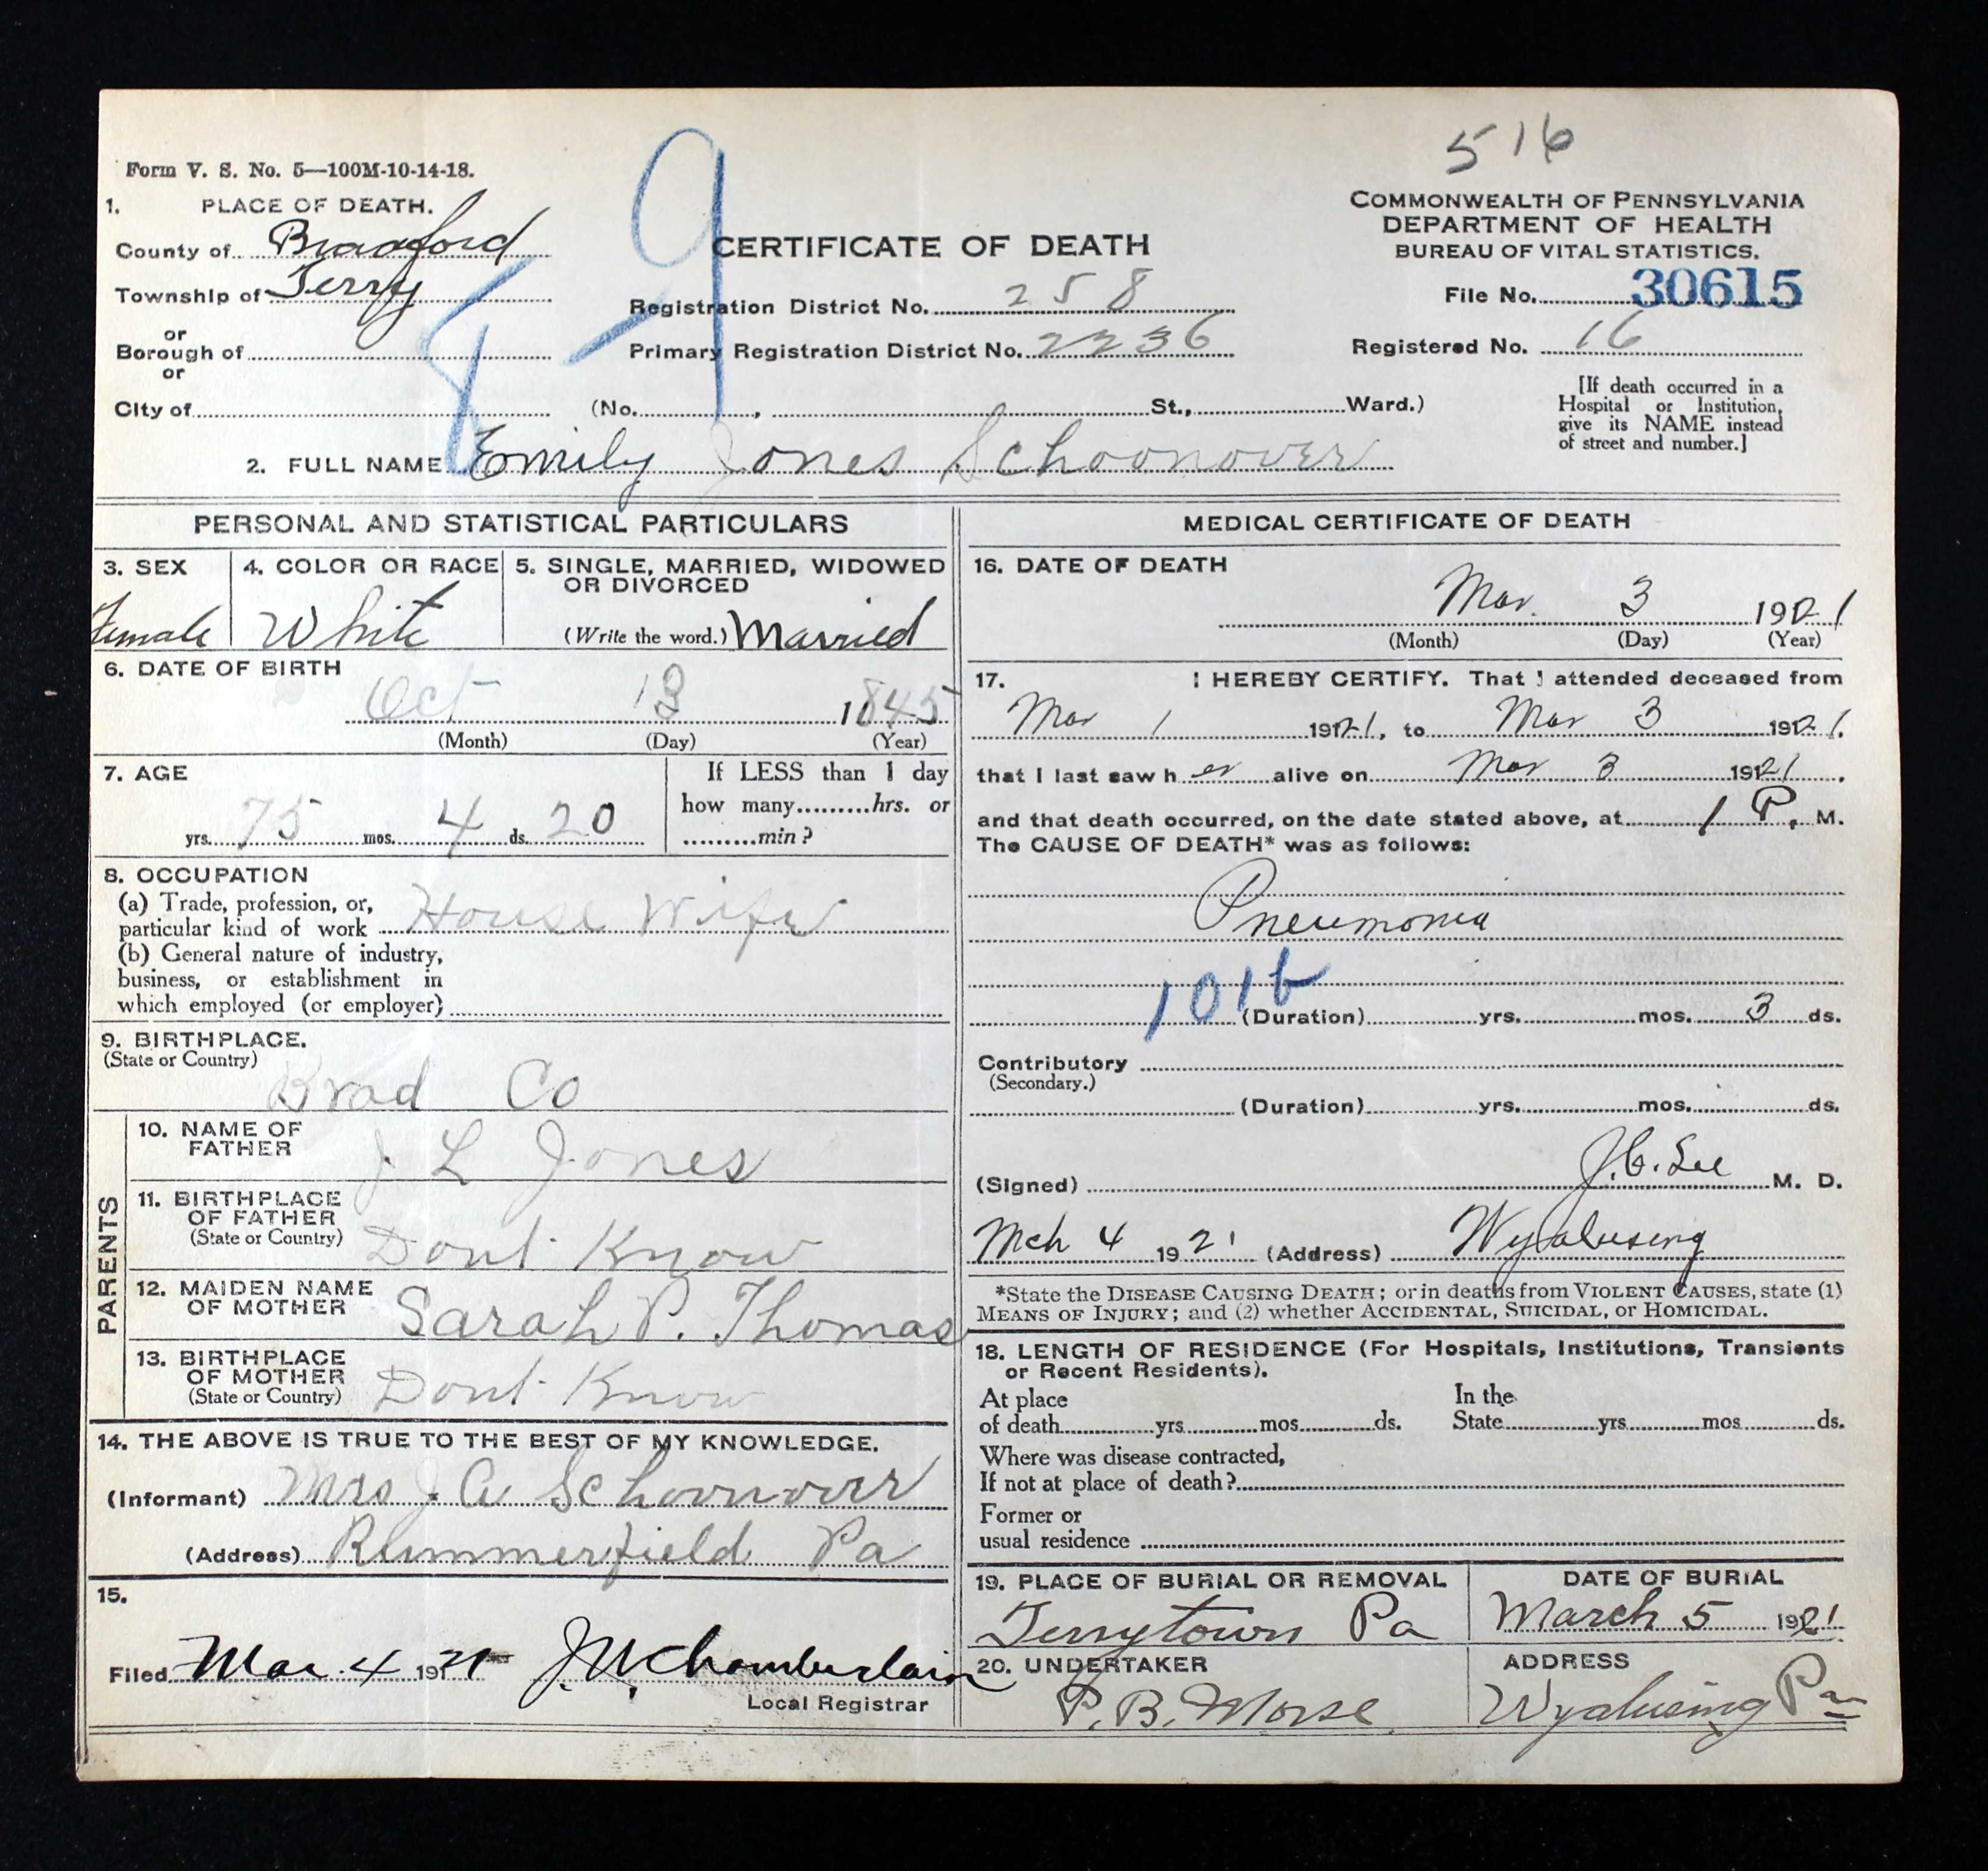 516
Form V. S. No. 5—100M-10-14-18.
1. PLACE OF DEATH.
County of Bradford
Township of Terry
or
Borough of
or
City of
8-9
CERTIFICATE OF DEATH
Registration District No. 258
Primary Registration District No. 2236
(No. , St., Ward.)
COMMONWEALTH OF PENNSYLVANIA
DEPARTMENT OF HEALTH
BUREAU OF VITAL STATISTICS.
File No. 30615
Registered No. 16
[If death occurred in a
Hospital or Institution,
give its NAME instead
of street and number.]
2. FULL NAME Emily Jones Schoonover
PERSONAL AND STATISTICAL PARTICULARS
3. SEX
Female
4. COLOR OR RACE
White
5. SINGLE, MARRIED, WIDOWED
OR DIVORCED
(Write the word.) Married
6. DATE OF BIRTH
Oct 13 1845
(Month) (Day) (Year)
7. AGE
yrs. 75 mos. 4 ds. 20
If LESS than 1 day
how many hrs. or
min?
8. OCCUPATION
(a) Trade, profession, or,
particular kind of work House Wife
(b) General nature of industry,
business, or establishment in
which employed (or employer)
9. BIRTHPLACE.
(State or Country)
Brad Co
PARENTS
10. NAME OF
FATHER
J. L Jones
11. BIRTHPLACE
OF FATHER
(State or Country)
Dont Know
12. MAIDEN NAME
OF MOTHER
Sarah P. Thomas
13. BIRTHPLACE
OF MOTHER
(State or Country)
Dont Know
14. THE ABOVE IS TRUE TO THE BEST OF MY KNOWLEDGE.
(Informant) Mrs J. A Schoonover
(Address) Rummerfield Pa
15.
Filed Mar. 4 1921 J. W. Chamberlain
Local Registrar
MEDICAL CERTIFICATE OF DEATH
16. DATE OF DEATH
Mar. 3 1921
(Month) (Day) (Year)
17. I HEREBY CERTIFY. That I attended deceased from
Mar 1 1921, to Mar 3 1921.
that I last saw h er alive on Mar 3 1921.
and that death occurred, on the date stated above, at 1 P. M.
The CAUSE OF DEATH* was as follows:
Pneumonia
101b
(Duration) yrs. mos. 3 ds.
Contributory
(Secondary.)
(Duration) yrs. mos. ds.
(Signed) J. C. Lee M. D.
Mch 4 1921 (Address) Wyalusing
*State the DISEASE CAUSING DEATH; or in deaths from VIOLENT CAUSES, state (1)
MEANS OF INJURY; and (2) whether ACCIDENTAL, SUICIDAL, or HOMICIDAL.
18. LENGTH OF RESIDENCE (For Hospitals, Institutions, Transients
or Recent Residents).
At place
of death yrs mos ds.
In the
State yrs mos ds.
Where was disease contracted,
If not at place of death?
Former or
usual residence
19. PLACE OF BURIAL OR REMOVAL
Terrytown Pa
DATE OF BURIAL
March 5 1921
20. UNDERTAKER
P. B. Morse
ADDRESS
Wyalusing Pa